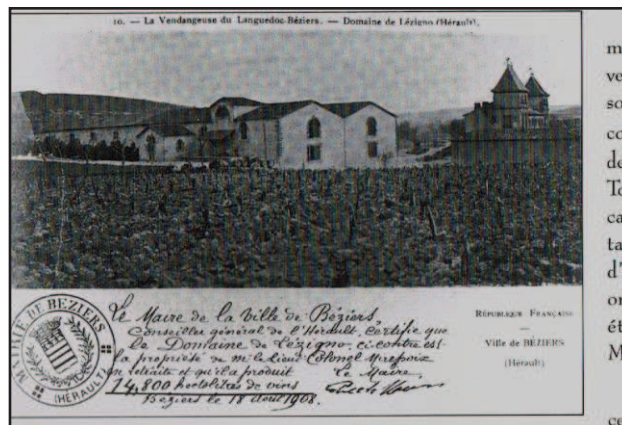 10. — La Vendangeuse du Languedoc-Béziers. — Domaine de Lézigno (Hérault).
MAIRIE DE BEZIERS
(HERAULT)
Le Maire de la Ville de Béziers,
Conseiller général de l'Hérault, Certifie que
le Domaine de Lézigno, ci-contre est
la propriété de mr le Lieut Colonel Mirepoix
en retraite et qu'il a produit
14,800 hectolitres de vins
Le Maire,
Béziers le 18 Août 1908.
RÉPUBLIQUE FRANÇAISE
—
Ville de BÉZIERS
(Hérault)
m
ve
so
co
de
To
ca
ta
d'
on
ét
M
ce